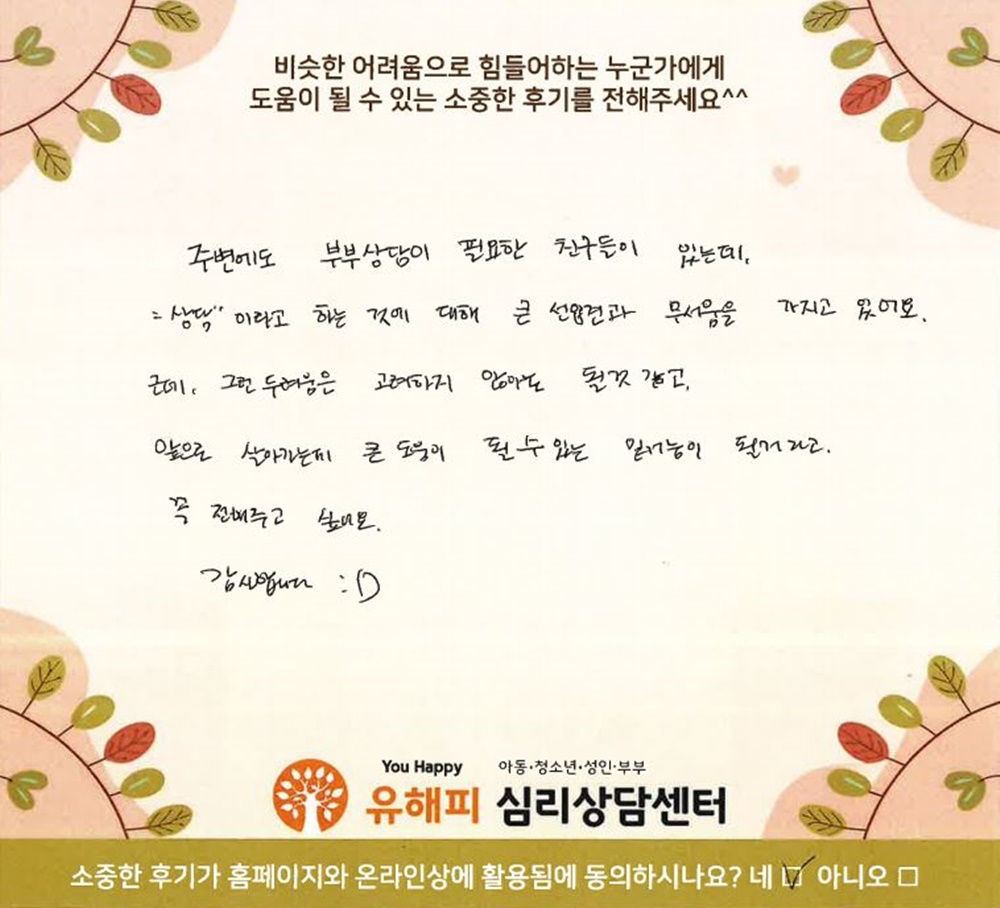 비슷한 어려움으로 힘들어하는 누군가에게
도움이 될 수 있는 소중한 후기를 전해주세요^^
주변에도 부부상담이 필요한 친구들이 있는데,
"상담" 이라고 하는 것에 대해 큰 선입견과 무서움을 가지고 있어요.
근데, 그런 두려움은 고려하지 않아도 될것 같고,
앞으로 살아가는데 큰 도움이 될 수 있는 밑거름이 될거라고.
꼭 전해주고 싶네요.
감사합니다 :D
You Happy 아동·청소년·성인·부부
유해피 심리상담센터
소중한 후기가 홈페이지와 온라인상에 활용됨에 동의하시나요? 네 ☑ 아니오 □